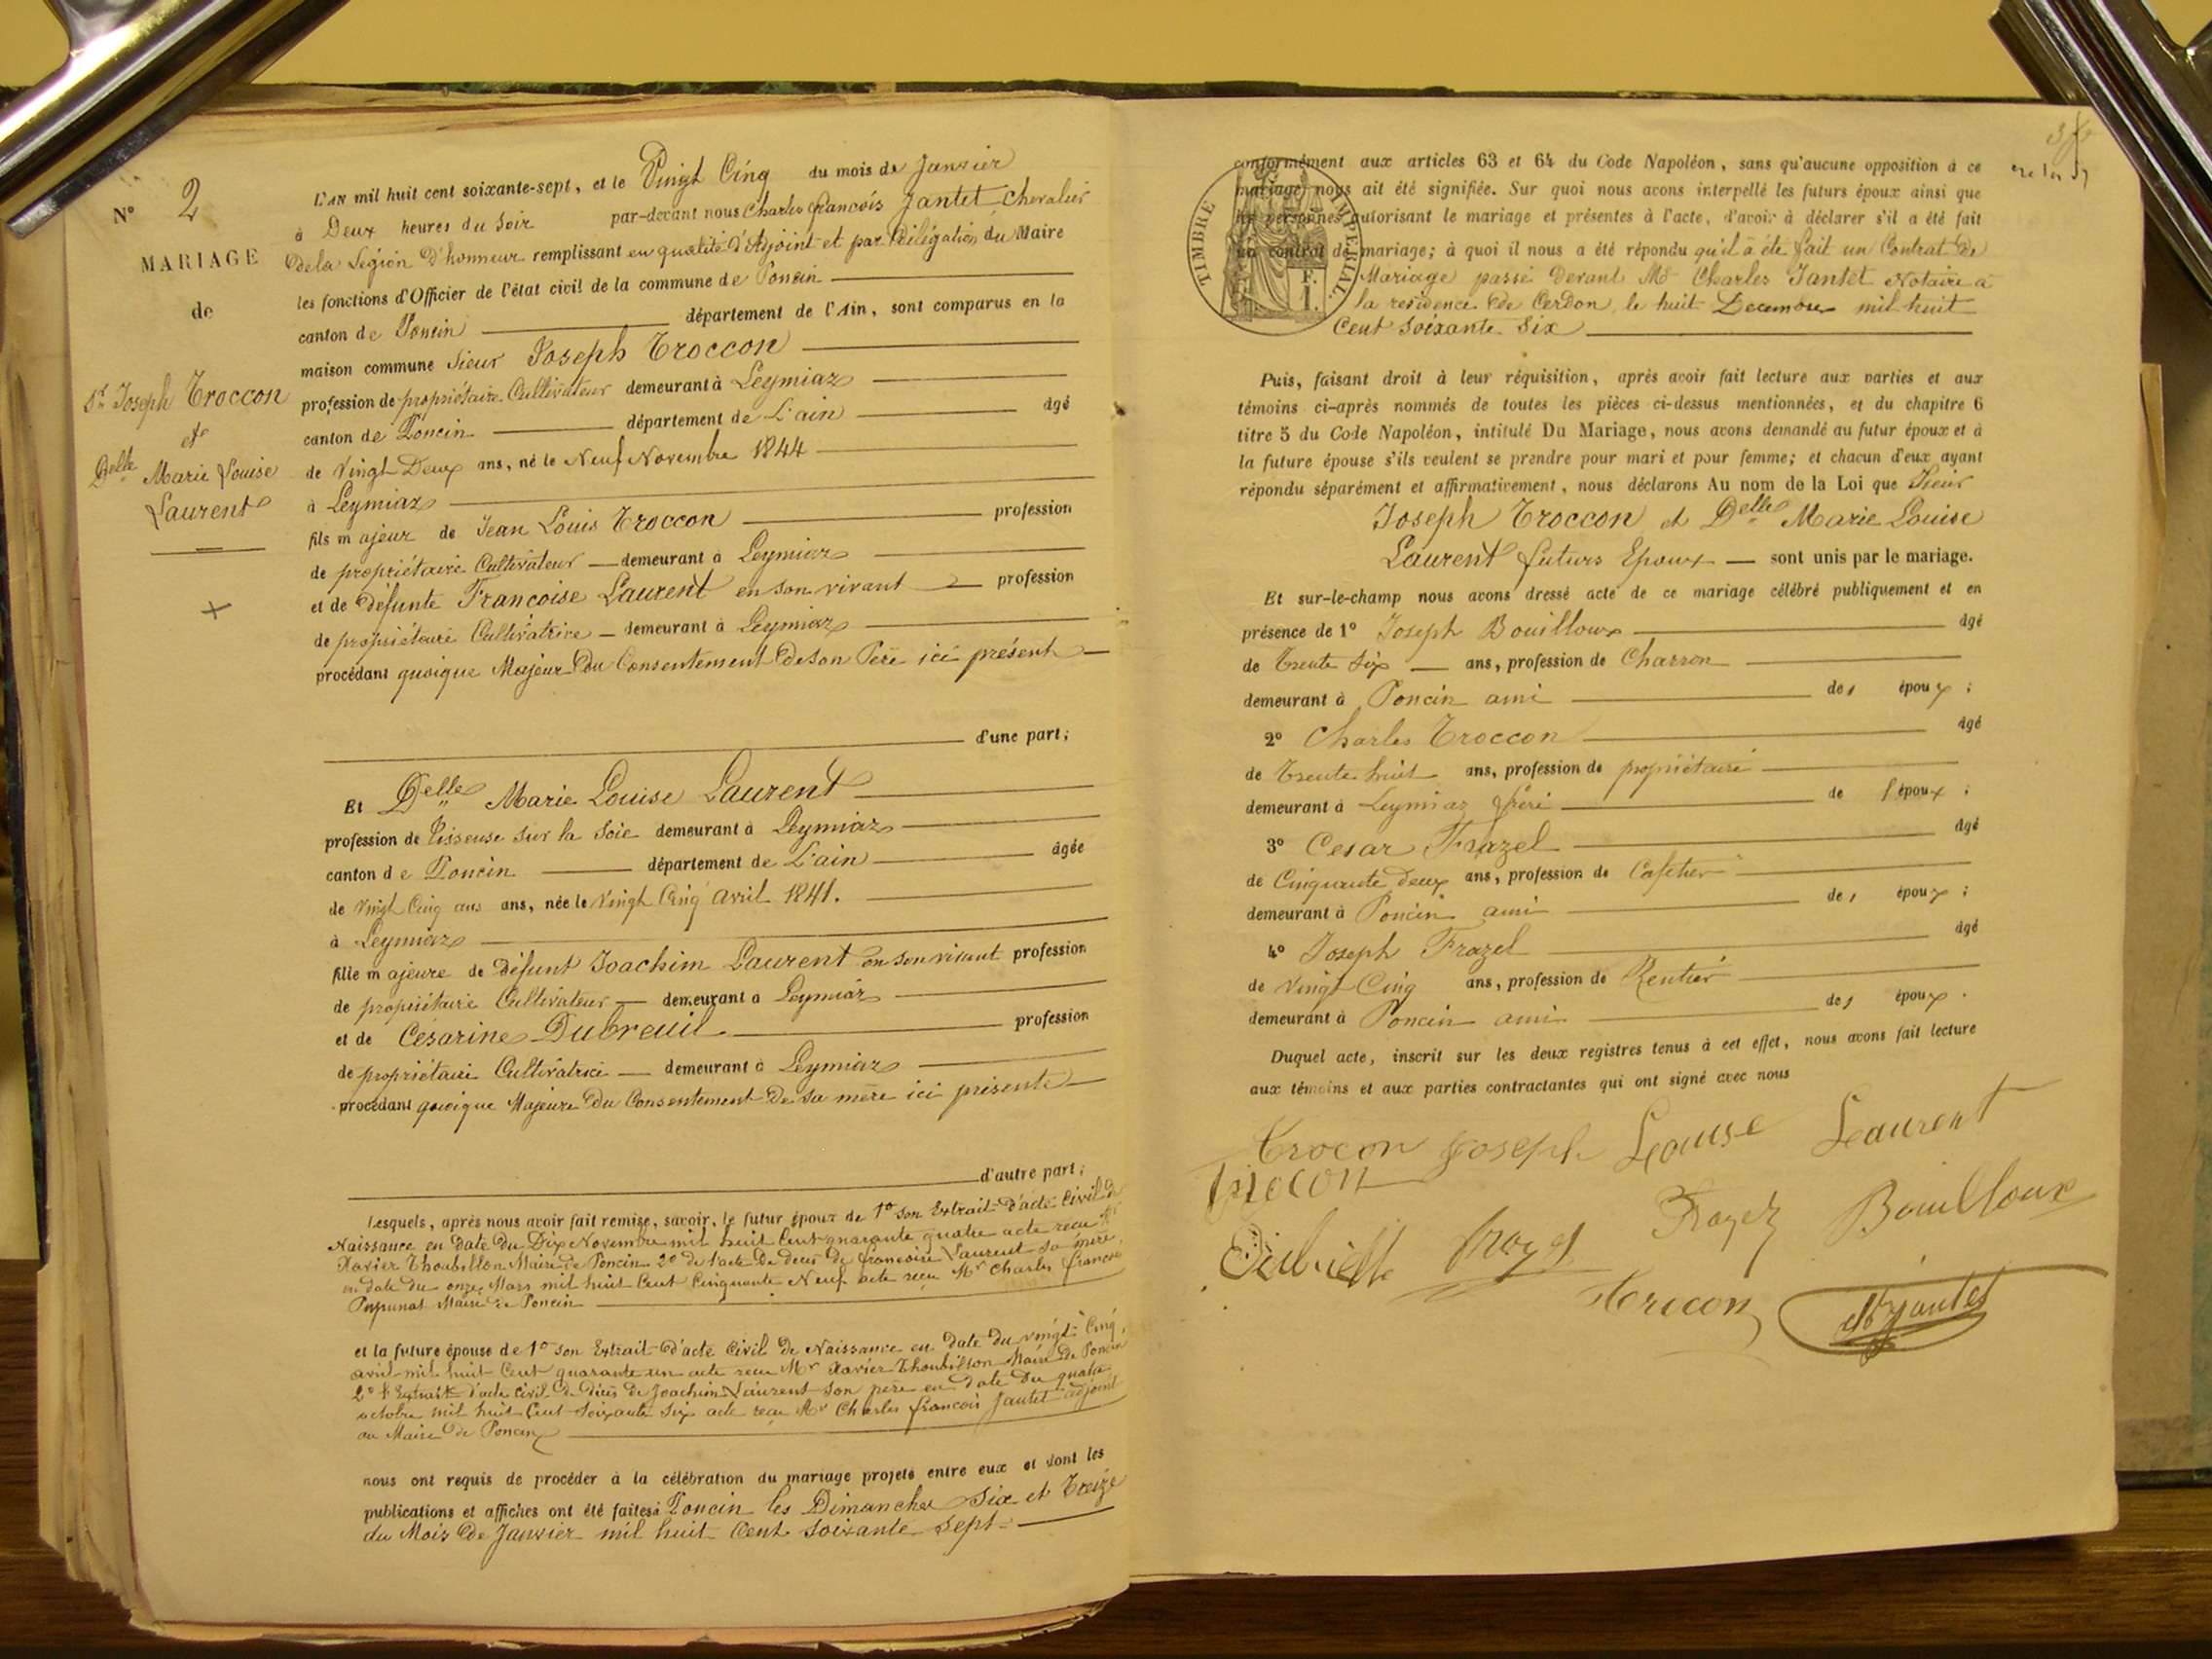 N° 2
MARIAGE
de
Sr Joseph Troccon
et
Delle Marie Louise
Laurent
L'AN mil huit cent soixante-sept, et le Vingt Cinq du mois de Janvier
à Deux heures du Soir par-devant nous Charles françois Jantet Chevalier
de la Légion d'honneur remplissant en qualité d'Adjoint et par Délégation du Maire
les fonctions d'Officier de l'état civil de la commune de Poncin
canton de Poncin département de l'Ain, sont comparus en la
maison commune Sieur Joseph Troccon
profession de propriétaire Cultivateur demeurant à Leymiaz
canton de Poncin département de L'ain âgé
de Vingt Deux ans, né le Neuf Novembre 1844
à Leymiaz
fils majeur de Jean Louis Troccon profession
de propriétaire Cultivateur demeurant à Leymiaz
et de défunte Françoise Laurent en son vivant profession
de propriétaire Cultivatrice demeurant à Leymiaz
procédant quoique Majeur du Consentement de son Père ici présent
d'une part;
Et Delle Marie Louise Laurent
profession de Tisseuse sur la Soie demeurant à Leymiaz
canton de Poncin département de L'ain âgée
de Vingt Cinq ans ans, née le Vingt Cinq avril 1841.
à Leymiaz
fille majeure de défunt Joachim Laurent en son vivant profession
de propriétaire Cultivateur demeurant à Leymiaz
et de Césarine Dubreuil profession
de propriétaire Cultivatrice demeurant à Leymiaz
procédant quoique Majeure du Consentement de sa mère ici présente
d'autre part;
Lesquels, après nous avoir fait remise, savoir, le futur époux de 1° Son Extrait d'acte Civil de
Naissance en date du Dix Novembre mil huit Cent quarante quatre acte reçu Mr
Xavier Thoubillon Maire de Poncin 2° de l'acte de décès de françoise Laurent sa mère
en date du onze Mars mil huit Cent Cinquante Neuf acte reçu Mr Charles françois
Maire de Poncin
et la future épouse de 1° Son Extrait d'acte Civil de Naissance en date du vingt Cinq
avril mil huit Cent quarante un acte reçu Mr Xavier Thoubillon Maire de Poncin
2° Extrait d'acte Civil de décès de Joachim Laurent son père en date du quatre
octobre mil huit Cent Soixante Six acte reçu Mr Charles françois Jantet adjoint
au Maire de Poncin
nous ont requis de procéder à la célébration du mariage projeté entre eux et dont les
publications et affiches ont été faites à Poncin les Dimanches Six et Treize
du Mois de Janvier mil huit Cent Soixante Sept
conformément aux articles 63 et 64 du Code Napoléon, sans qu'aucune opposition à ce
mariage nous ait été signifiée. Sur quoi nous avons interpellé les futurs époux ainsi que
les personnes autorisant le mariage et présentes à l'acte, d'avoir à déclarer s'il a été fait
un contrat de mariage; à quoi il nous a été répondu qu'il a été fait un Contrat de
Mariage passé devant Me Charles Jantet Notaire à
la résidence de Cerdon, le huit Decembre mil huit
Cent Soixante Six
TIMBRE IMPERIAL
1 F.
Puis, faisant droit à leur réquisition, après avoir fait lecture aux parties et aux
témoins ci-après nommés de toutes les pièces ci-dessus mentionnées, et du chapitre 6
titre 5 du Code Napoléon, intitulé Du Mariage, nous avons demandé au futur époux et à
la future épouse s'ils veulent se prendre pour mari et pour femme; et chacun d'eux ayant
répondu séparément et affirmativement, nous déclarons Au nom de la Loi que Sieur
Joseph Troccon et Delle Marie Louise
Laurent futurs Epoux sont unis par le mariage.
Et sur-le-champ nous avons dressé acte de ce mariage célébré publiquement et en
présence de 1° Joseph Bouilloux âgé
de Trente Six ans, profession de Charron
demeurant à Poncin ami des époux;
2° Charles Troccon âgé
de Trente huit ans, profession de propriétaire
demeurant à Leymiaz frère de l'époux;
3° Cesar Frazel âgé
de Cinquante deux ans, profession de Cafetier
demeurant à Poncin ami des époux;
4° Joseph Frazel âgé
de Vingt Cinq ans, profession de Rentier
demeurant à Poncin ami des époux.
Duquel acte, inscrit sur les deux registres tenus à cet effet, nous avons fait lecture
aux témoins et aux parties contractantes qui ont signé avec nous
Trocon Joseph Louise Leaurent
Trocon
Bouilloux
Jantet